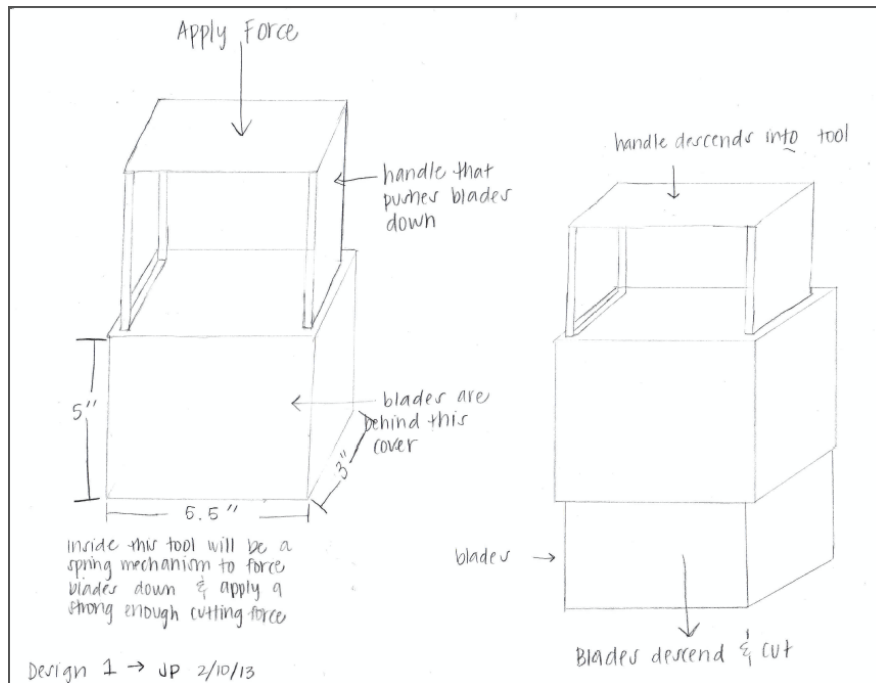 Apply Force
handle that
pushes blades
down
5"
blades are
behind this
cover
3"
5.5"
inside this tool will be a
spring mechanism to force
blades down & apply a
strong enough cutting force
Design 1 → JP 2/10/13
handle descends into tool
blades →
Blades descend & cut